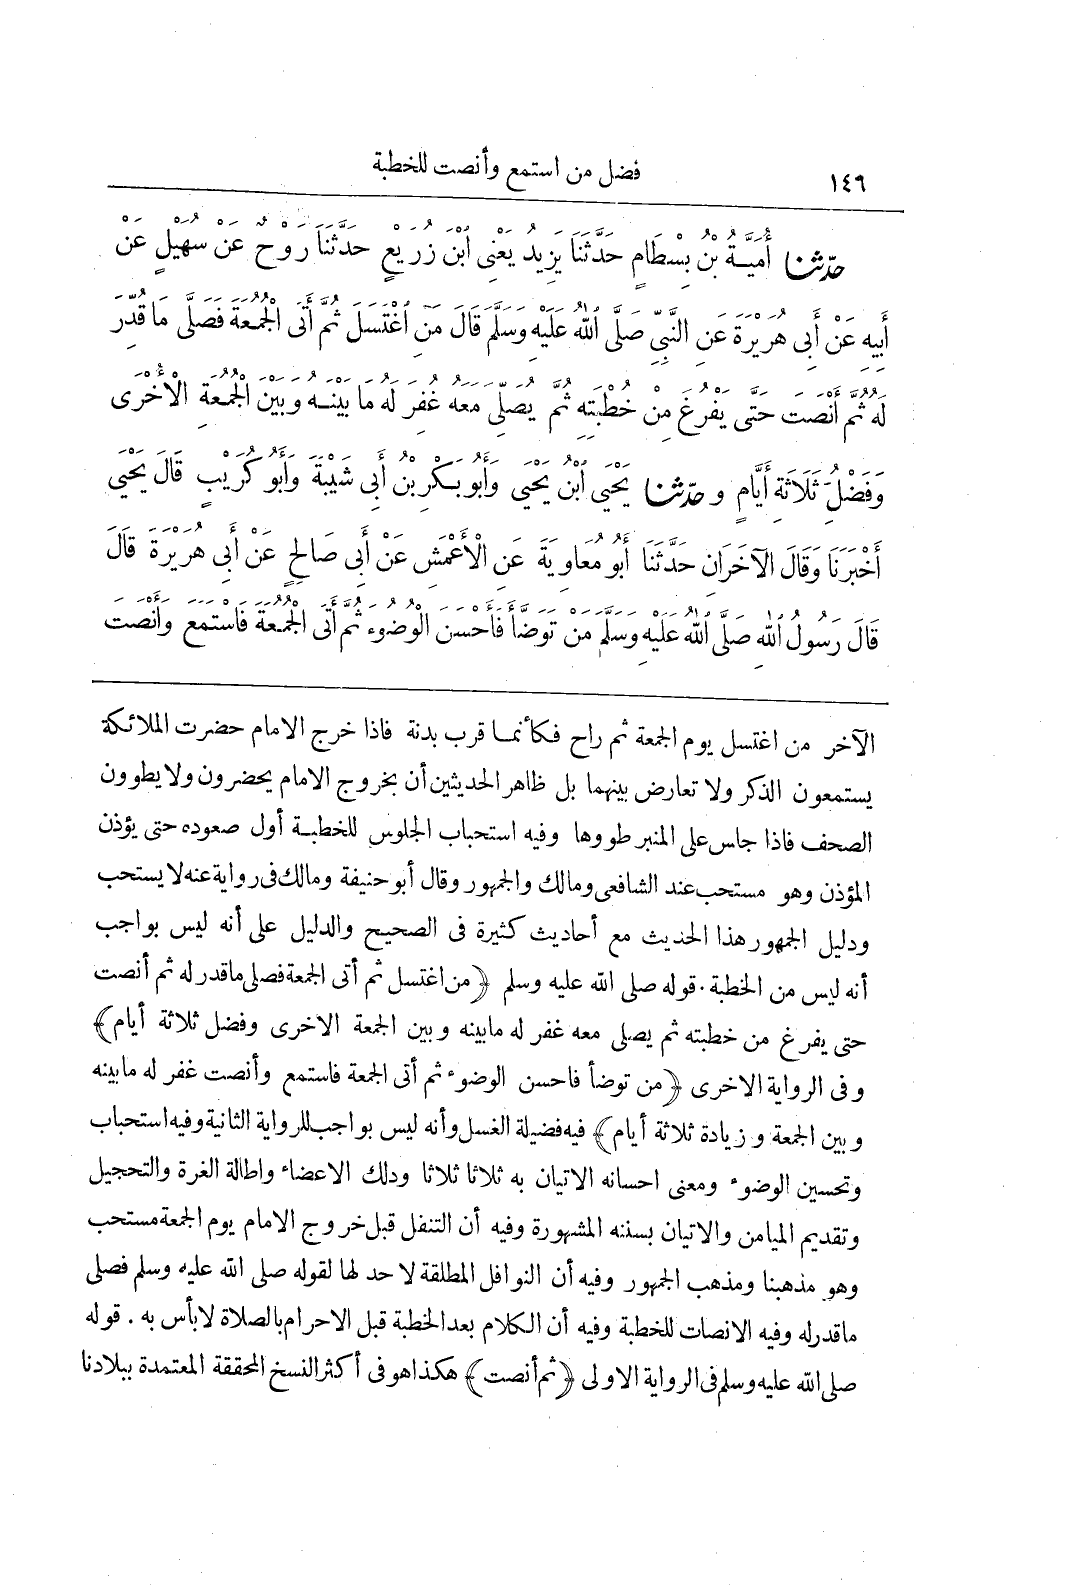 ١٤٦ فضل من استمع وأنصت للخطبة
حدّثنا أُمَيَّةُ بْنُ بِسْطَامٍ حَدَّثَنَا يَزِيدُ يَعْنِى ابْنَ زُرَيْعٍ حَدَّثَنَا رَوْحٌ عَنْ سُهَيْلٍ عَنْ
أَبِيهِ عَنْ أَبِى هُرَيْرَةَ عَنِ النَّبِىِّ صَلَّى اللهُ عَلَيْهِ وَسَلَّمَ قَالَ مَنِ اغْتَسَلَ ثُمَّ أَتَى الْجُمُعَةَ فَصَلَّى مَا قُدِّرَ
لَهُ ثُمَّ أَنْصَتَ حَتَّى يَفْرُغَ مِنْ خُطْبَتِهِ ثُمَّ يُصَلِّىَ مَعَهُ غُفِرَ لَهُ مَا بَيْنَهُ وَبَيْنَ الْجُمُعَةِ الْأُخْرَى
وَفَضْلُ ثَلَاثَةِ أَيَّامٍ و حدّثنا يَحْيَى ابْنُ يَحْيَى وَأَبُو بَكْرِ بْنُ أَبِى شَيْبَةَ وَأَبُو كُرَيْبٍ قَالَ يَحْيَى
أَخْبَرَنَا وَقَالَ الْآخَرَانِ حَدَّثَنَا أَبُو مُعَاوِيَةَ عَنِ الْأَعْمَشِ عَنْ أَبِى صَالِحٍ عَنْ أَبِى هُرَيْرَةَ قَالَ
قَالَ رَسُولُ اللهِ صَلَّى اللهُ عَلَيْهِ وَسَلَّمَ مَنْ تَوَضَّأَ فَأَحْسَنَ الْوُضُوءَ ثُمَّ أَتَى الْجُمُعَةَ فَاسْتَمَعَ وَأَنْصَتَ
الآخر من اغتسل يوم الجمعة ثم راح فكأنما قرب بدنة فاذا خرج الامام حضرت الملائكة
يستمعون الذكر ولا تعارض بينهما بل ظاهر الحديثين أن بخروج الامام يحضرون ولا يطوون
الصحف فاذا جلس على المنبر طووها وفيه استحباب الجلوس للخطبة أول صعوده حتى يؤذن
المؤذن وهو مستحب عند الشافعى ومالك والجمهور وقال أبو حنيفة ومالك فى رواية عنه لا يستحب
ودليل الجمهور هذا الحديث مع أحاديث كثيرة فى الصحيح والدليل على أنه ليس بواجب
أنه ليس من الخطبة. قوله صلى الله عليه وسلم ﴿من اغتسل ثم أتى الجمعة فصلى ماقدر له ثم أنصت
حتى يفرغ من خطبته ثم يصلى معه غفر له مابينه وبين الجمعة الاخرى وفضل ثلاثة أيام﴾
وفى الرواية الاخرى ﴿من توضأ فاحسن الوضوء ثم أتى الجمعة فاستمع وأنصت غفر له مابينه
وبين الجمعة وزيادة ثلاثة أيام﴾ فيه فضيلة الغسل وأنه ليس بواجب للرواية الثانية وفيه استحباب
وتحسين الوضوء ومعنى احسانه الاتيان به ثلاثا ثلاثا ودلك الاعضاء واطالة الغرة والتحجيل
وتقديم الميامن والاتيان بسننه المشهورة وفيه أن التنفل قبل خروج الامام يوم الجمعة مستحب
وهو مذهبنا ومذهب الجمهور وفيه أن النوافل المطلقة لا حد لها لقوله صلى الله عليه وسلم فصلى
ماقدرله وفيه الانصات للخطبة وفيه أن الكلام بعد الخطبة قبل الاحرام بالصلاة لا بأس به . قوله
صلى الله عليه وسلم فى الرواية الاولى ﴿ثم أنصت﴾ هكذا هو فى أكثر النسخ المحققة المعتمدة ببلادنا